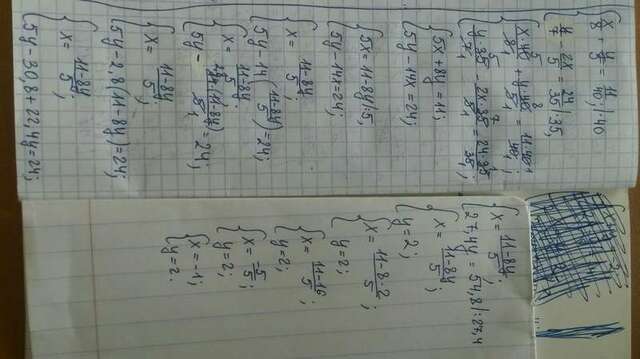 x/8 + y/5 = 11/40 |·40
y/7 - 2x/5 = 24/35 |·35,
x·40/8 + y·40/5 = 11·40/40;
y·35/7 - 2x·35/5 = 24·35/35;
5x + 8y = 11;
5y - 14x = 24;
5x = 11 - 8y |:5,
5y - 14x = 24;
x = 11-8y/5;
5y - 14(11-8y/5) = 24;
x = 11-8y/5;
5y - (11-8y)/5 = 24;
x = 11-8y/5;
5y - 2,8(11-8y) = 24;
x = 11-8y/5;
5y - 30,8 + 22,4y = 24;
x = 11-8y/5;
27,4y = 54,8 |:27,4
x = 11-8y/5;
y = 2;
x = 11-8·2/5;
y = 2;
x = 11-16/5;
y = 2;
x = -5/5;
y = 2;
x = -1;
y = 2.